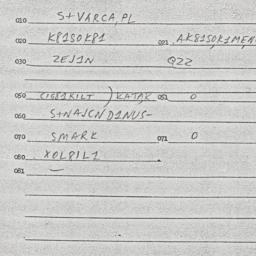 010 S+VARCA,PL
020 K81SOK81 021 AK81SOK1MEN
030 ZEJ1N QZZ
050 KATAK 051 0
060 S+NAJCND1NUS-
070 SMARK 071 0
080 XOLPIL1
081 —